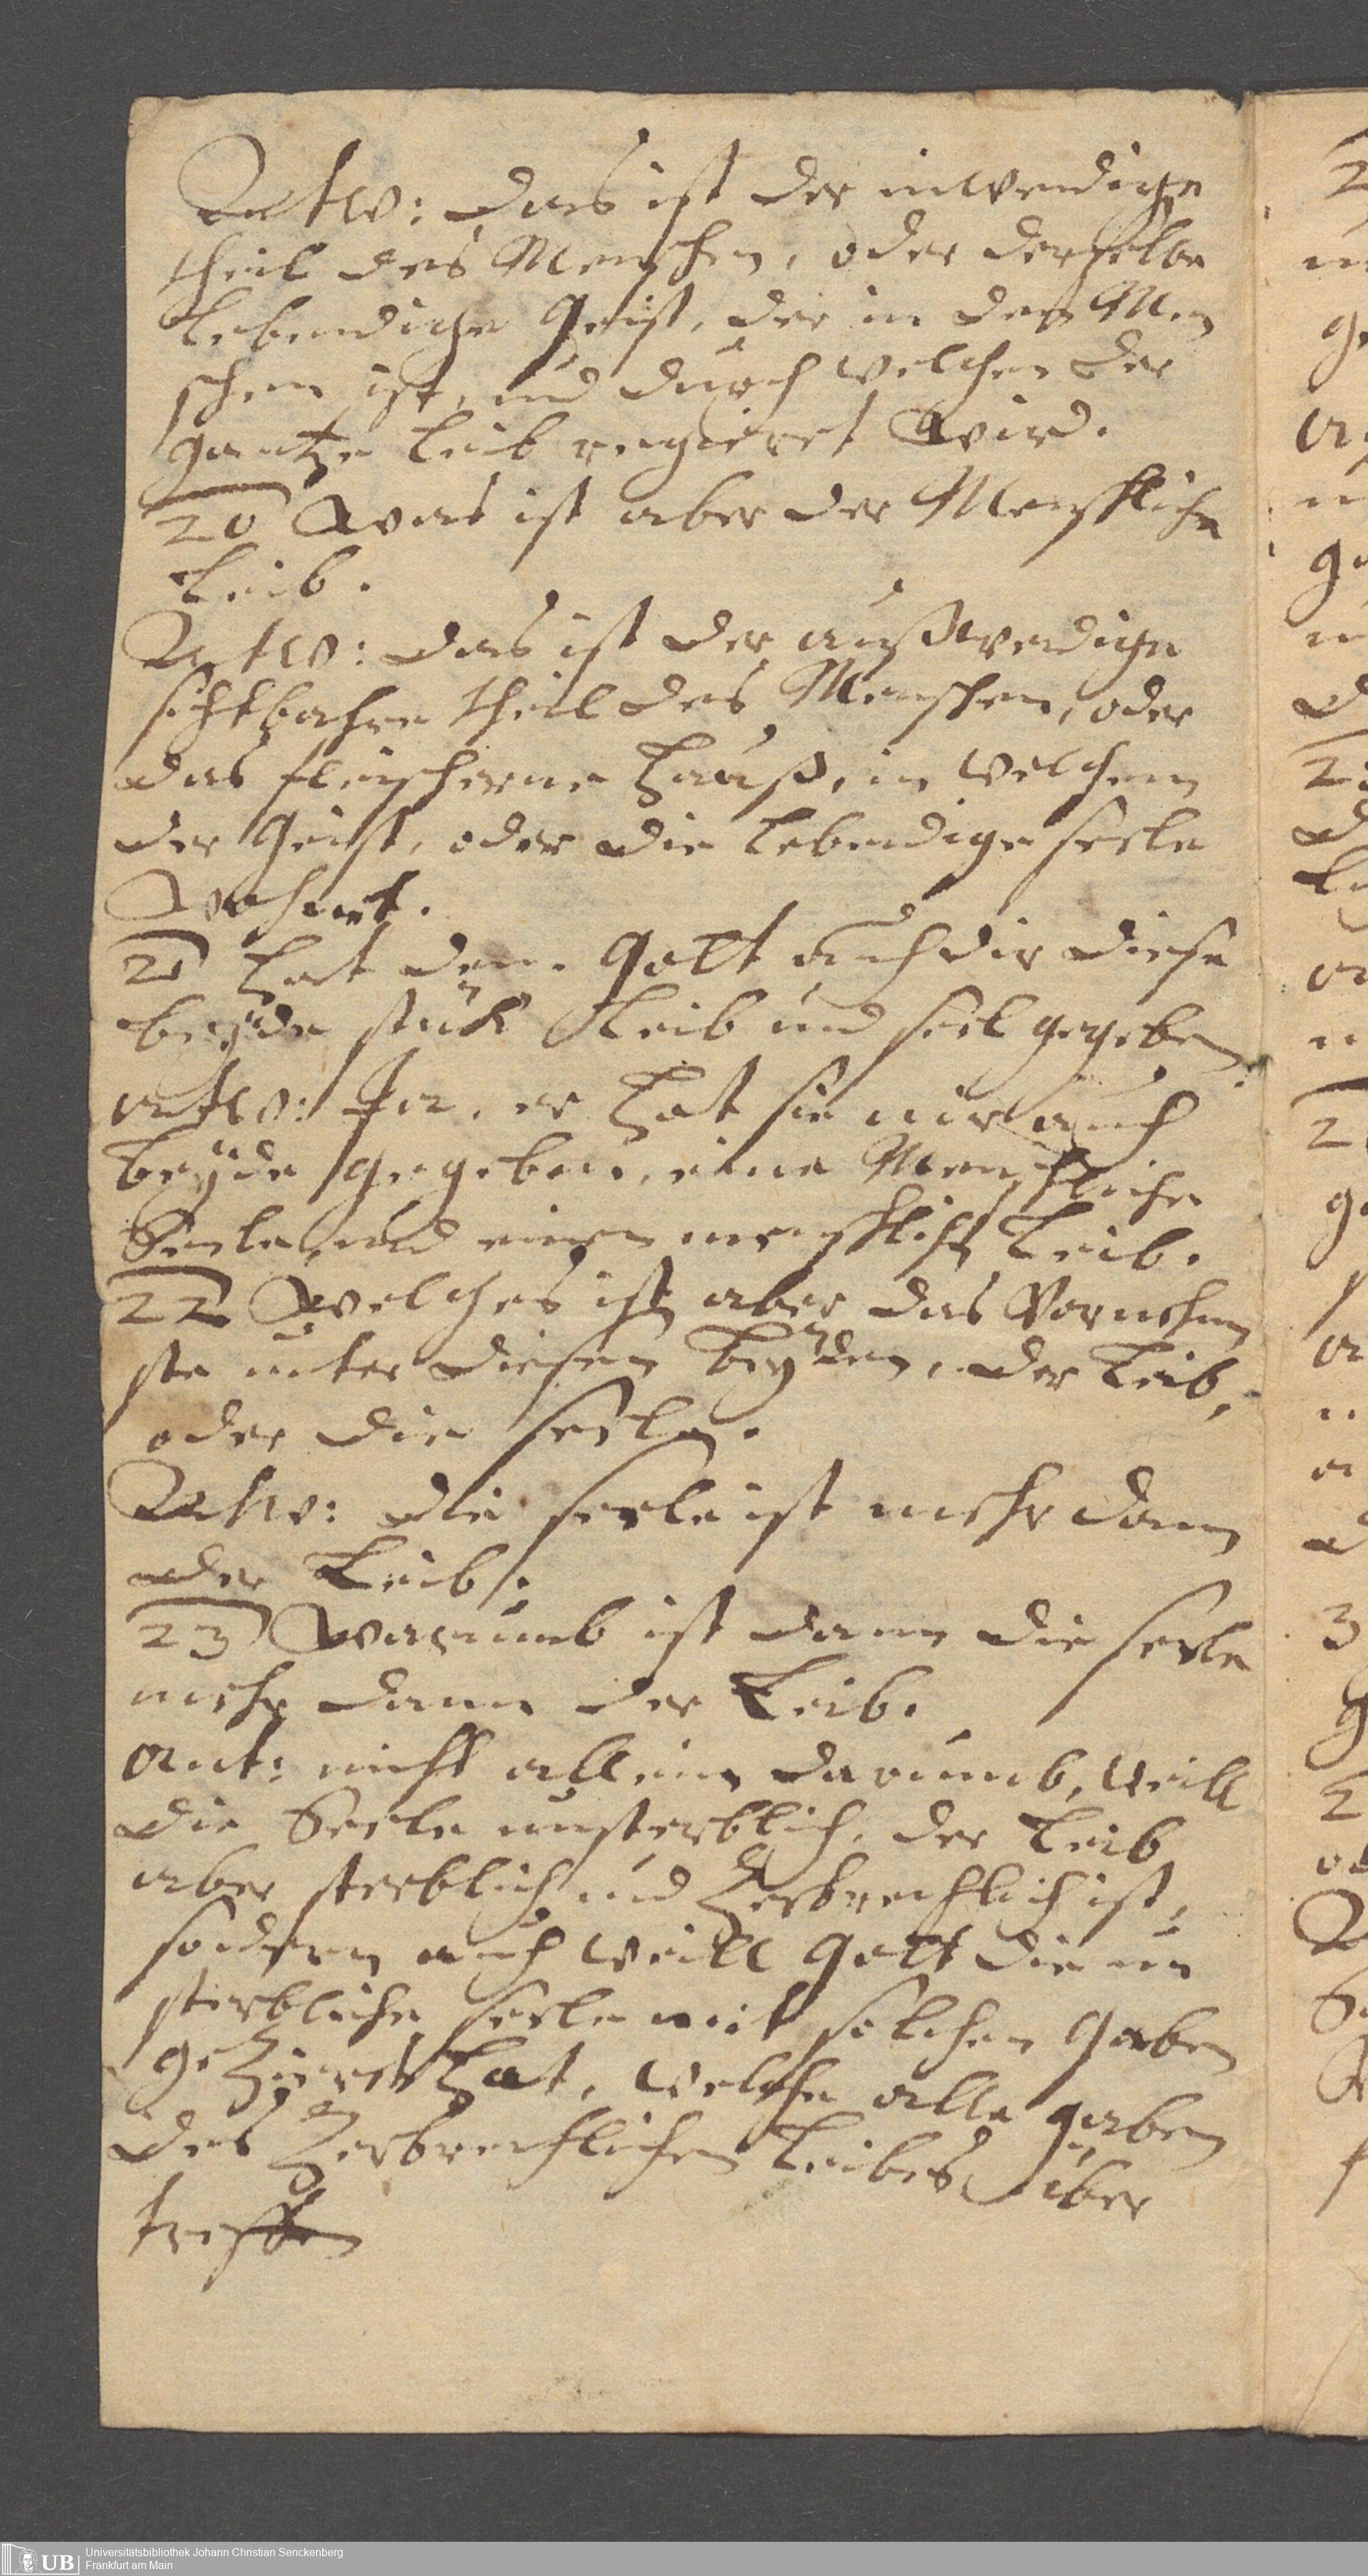 Antw: das ist der inwendige
theil des Menschen, oder derselbe
Lebendige Geist, der in den Men
schen ist, und durch welchen der
gantze Leib regieret wird.
20 Was ist aber der Menschliche
Leib.
Antw: das ist der außwendige
sichtbahre theil des Menschen, oder
das fleischerne Hauß, in welchem
der Geist, oder die Lebendige seele
Wohnet.
21 Hat den Gott auch dir diese
beyde stück Leib und seel gegeben
antw: Ja, er hat sie mir auch
beyde gegeben, eine Menschliche
Seele, und einen menschlichen Leib.
22 Welches ist aber das Vornehm
ste unter diesen beyden, der Leib,
oder die seele.
Antw: die seele ist mehr dann
der Leib.
23 Warumb ist dann die seele
mehr dann der Leib.
Ant: nicht allein darumb, weill
die Seele unsterblich, der Leib
aber sterblich und Zerbrechlich ist,
sondern auch weill Gott die un
sterbliche seele mit solchen Gaben
geZieret hat, welche alle gaben
des Zerbrechlichen Leibes über
treffen
Universitätsbibliothek Johann Christian Senckenberg
UB Frankfurt am Main